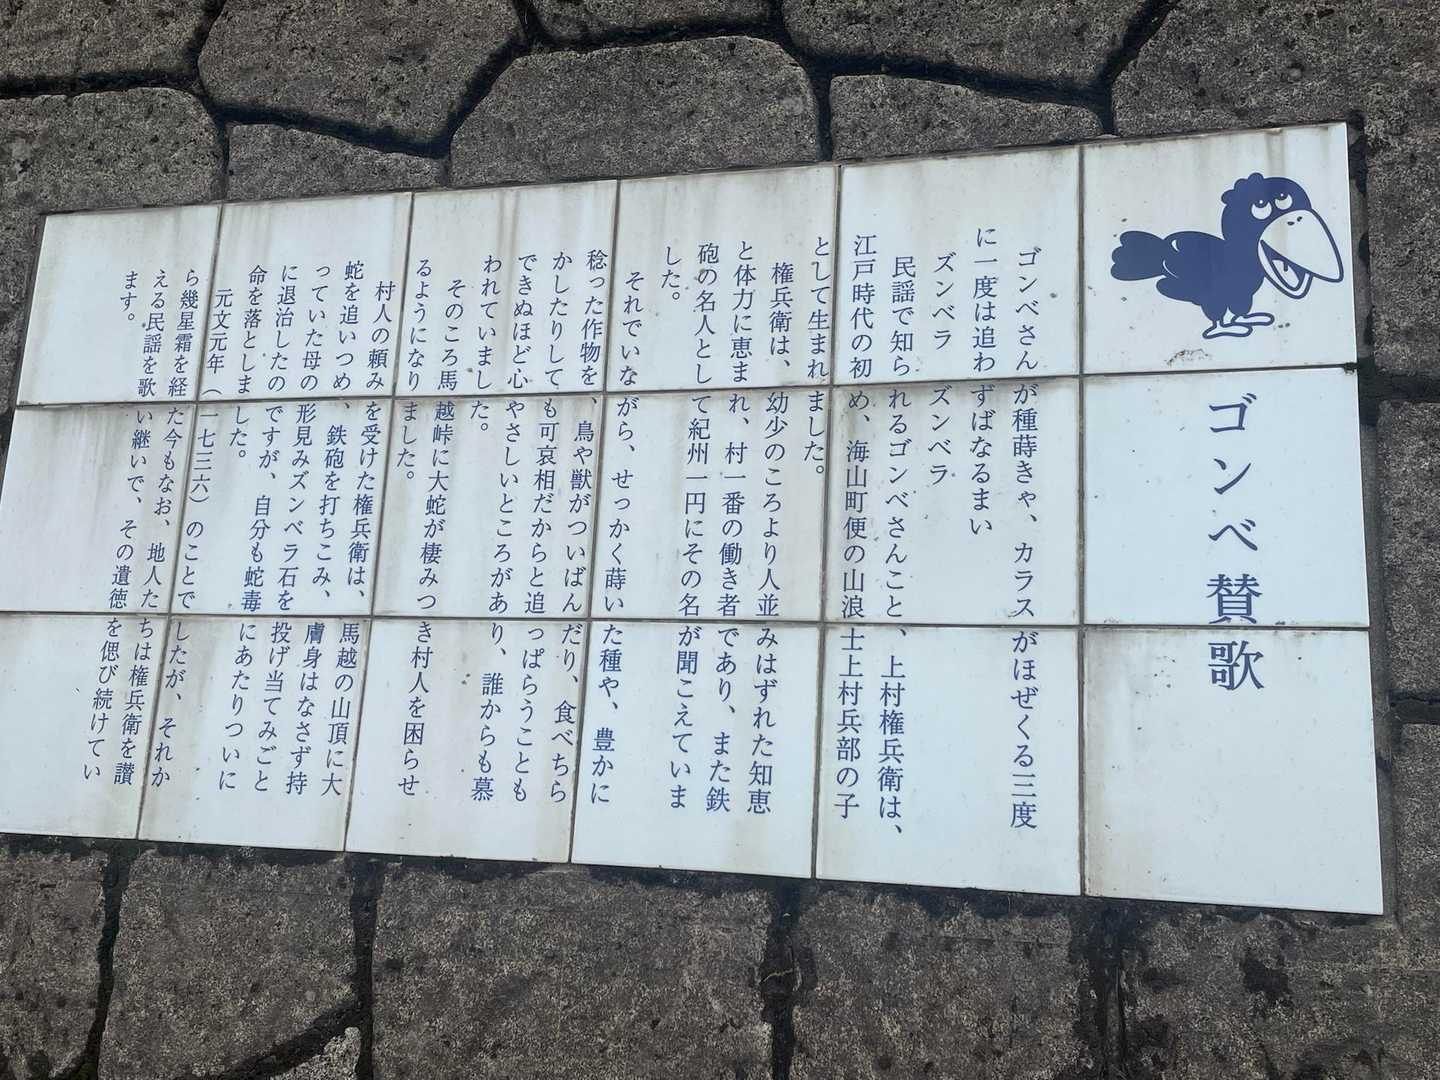 ゴンベ賛歌
ゴンベさんが種蒔きゃ、カラスがほぜくる三度
に一度は追わずばなるまい
ズンベラ ズンベラ
民謡で知られるゴンベさんこと、上村権兵衛は、
江戸時代の初め、海山町便の山浪士上村兵部の子
として生まれました。
権兵衛は、幼少のころより人並みはずれた知恵
と体力に恵まれ、村一番の働き者であり、また鉄
砲の名人として紀州一円にその名が聞こえていま
した。
それでいながら、せっかく蒔いた種や、豊かに
稔った作物を、鳥や獣がついばんだり、食べちら
かしたりしても可哀相だからと追っぱらうことも
できぬほど心やさしいところがあり、誰からも慕
われていました。
そのころ馬越峠に大蛇が棲みつき村人を困らせ
るようになりました。
村人の頼みを受けた権兵衛は、馬越の山頂に大
蛇を追いつめ、鉄砲を打ちこみ、膚身はなさず持
っていた母の形見みズンベラ石を投げ当てみごと
に退治したのですが、自分も蛇毒にあたりついに
命を落としました。
元文元年（一七三六）のことでしたが、それか
ら幾星霜を経た今もなお、地人たちは権兵衛を讃
える民謡を歌い継いで、その遺徳を偲び続けてい
ます。